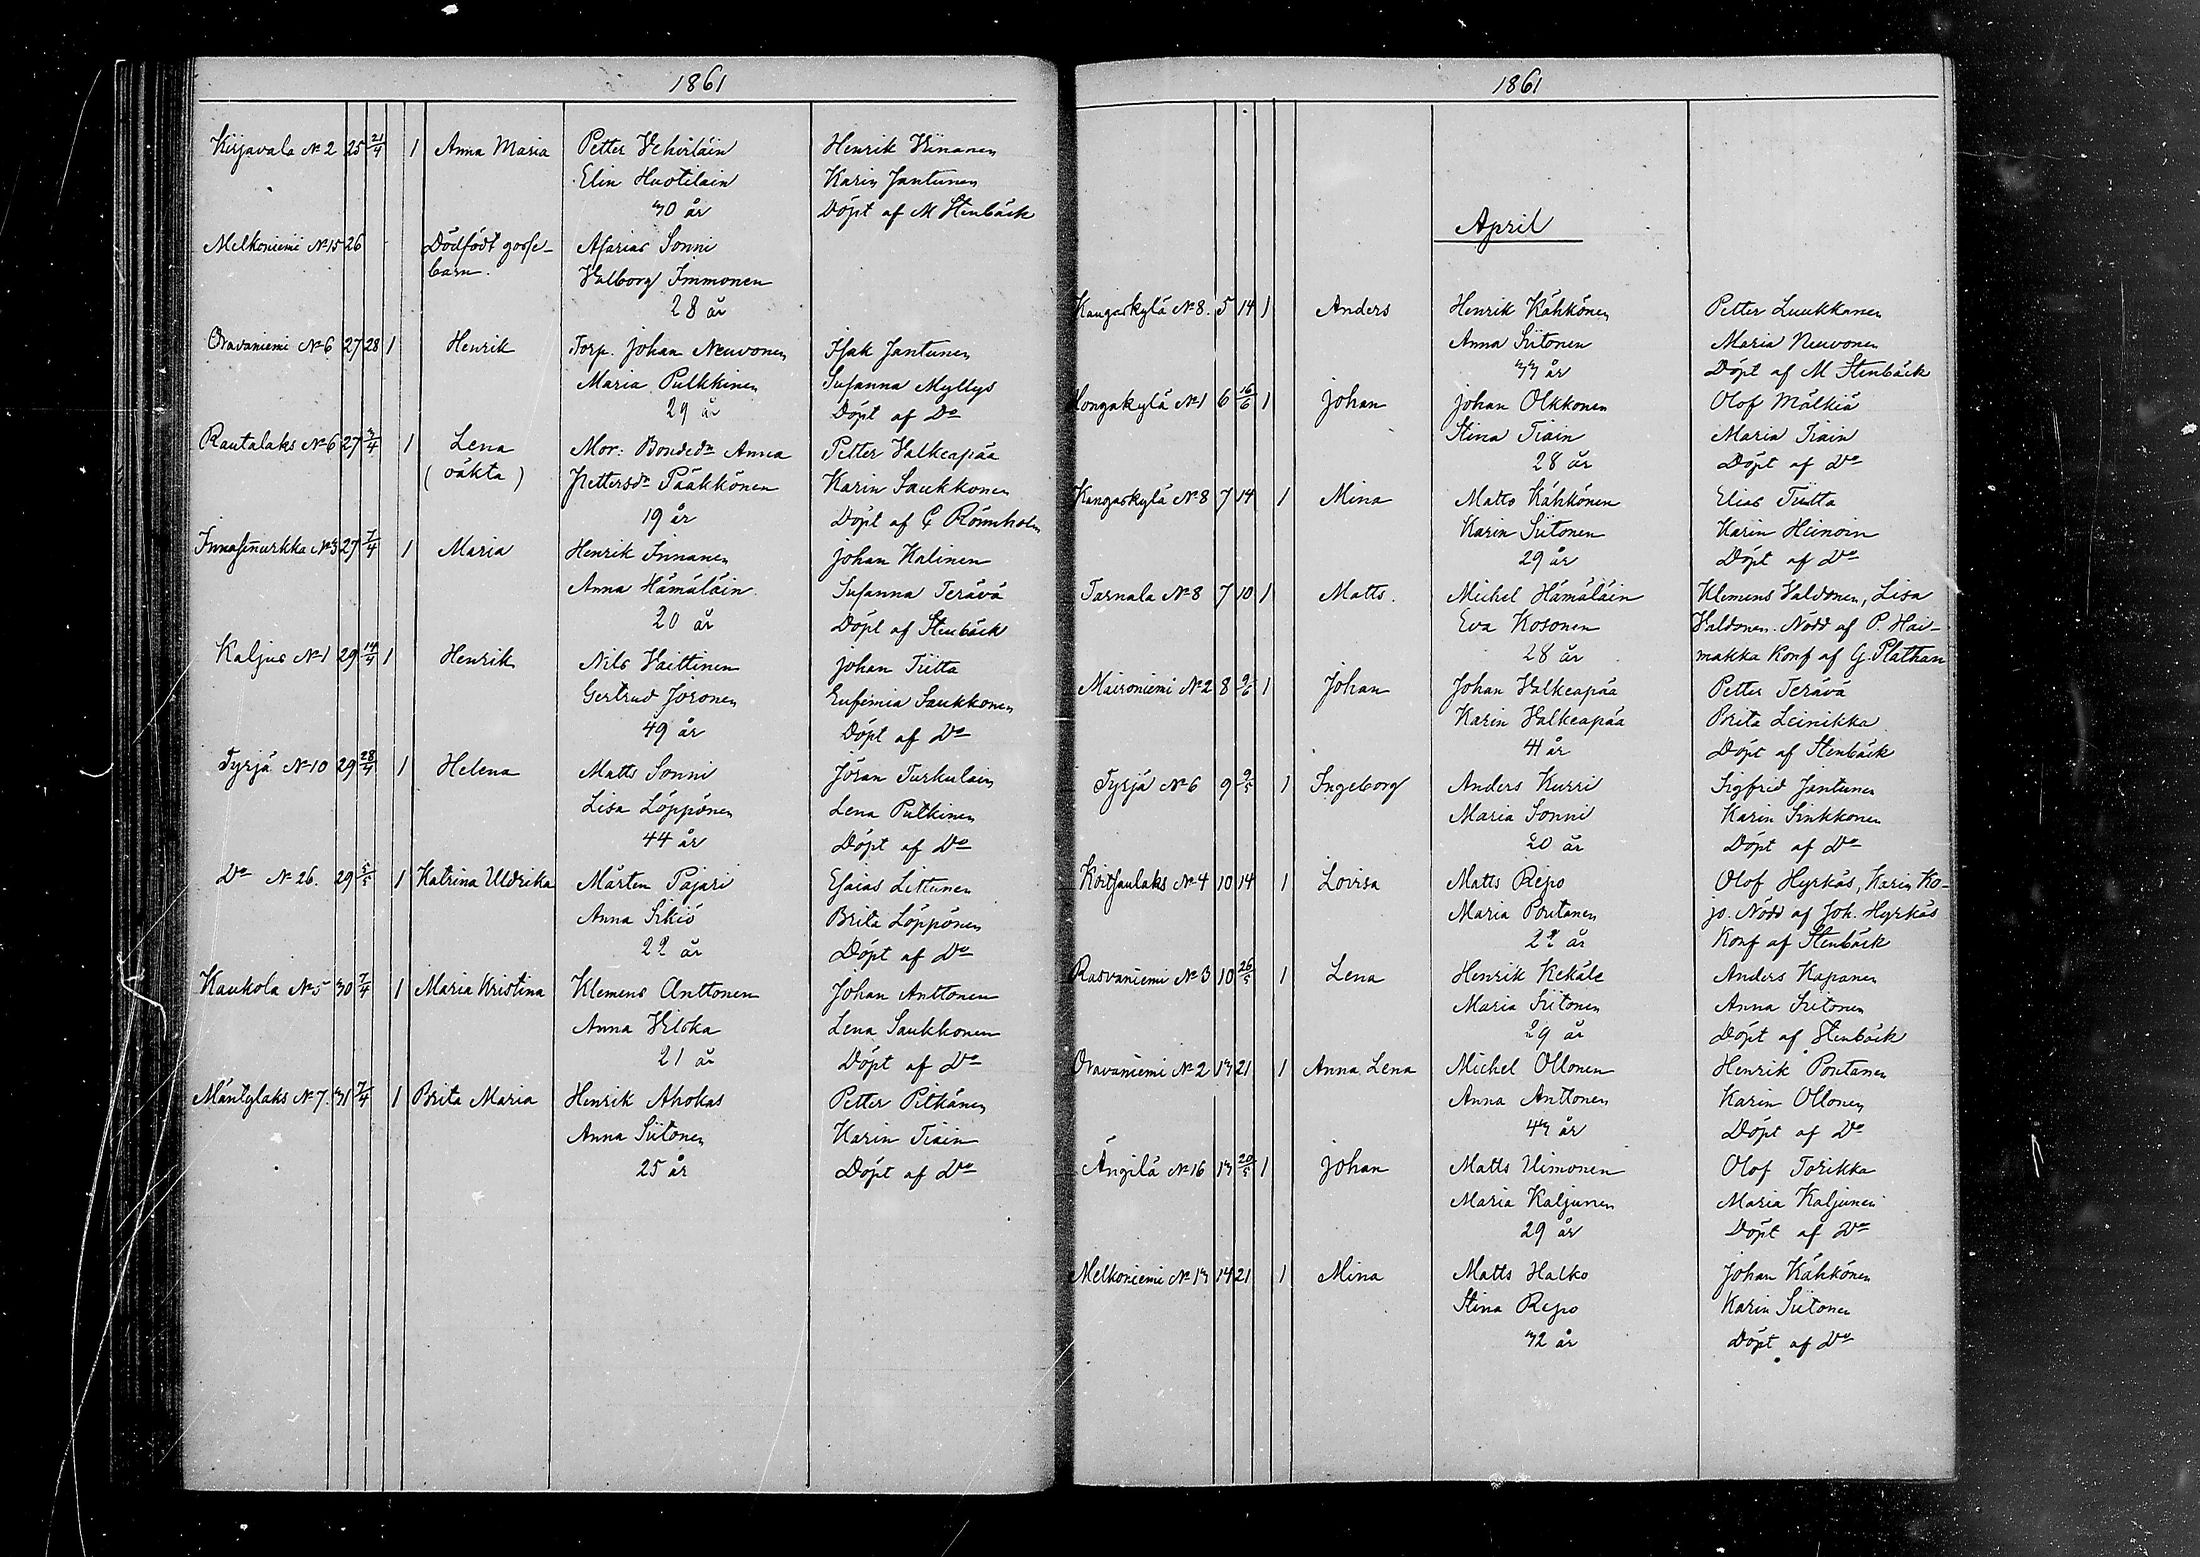 1861
Kirjavala No 2 25 21/4 1 Anna Maria Petter Vehviläin Henrik Kinanen
Elin Huotilain Karin Jantunen
30 år Döpt af M Stenbäck
Melkoniemi No 15 26 Dödfödt gosse- Asarias Sonni
barn. Valborg Immonen
28 år
Oravaniemi No 6 27 28 1 Henrik Torp. Johan Neuvonen Isak Jantunen
Maria Pulkkinen Susanna Myllys
29 år Döpt af Do
Rautalaks No 6 27 3/4 1 Lena Mor: Bondedr Anna Petter Valkeapää
(oäkta) Pettersdr Pääkkönen Karin Saukkonen
19 år Döpt af C Rönnholm
Innasennurkka No 3 27 7/4 1 Maria Henrik Innanen Johan Kalinen
Anna Hämäläin Susanna Terävä
20 år Döpt af Stenbäck
Kaljus No 1 29 14/4 1 Henrik Nils Vaittinen Johan Tiitta
Gertrud Joronen Eufemia Saukkonen
49 år Döpt af Do
Tyrjä No 10 29 28/4 1 Helena Matts Sonni Jöran Turkulain
Lisa Löppönen Lena Putkinen
44 år Döpt af Do
Do No 26. 29 5/5 1 Katrina Uldrika Mårten Pajari Esaias Littunen
Anna Sikiö Brita Löppönen
22 år Döpt af Do
Kaukola No 5 30 7/4 1 Maria Kristina Klemens Anttonen Johan Anttonen
Anna Vilska Lena Saukkonen
21 år Döpt af Do
Mäntylaks No 7. 31 7/4 1 Brita Maria Henrik Ahokas Petter Pitkänen
Anna Siitonen Karin Tiain
25 år Döpt af Do
1861
April
Kangaskylä No 8. 5 14 1 Anders Henrik Kähkönen Petter Luukkanen
Anna Siitonen Maria Neuvonen
33 år Döpt af M Stenbäck
Kongakylä No 1 6 16/6 1 Johan Johan Olkkonen Olof Mälkiä
Stina Tiain Maria Tiain
28 år Döpt af Do
Kangaskylä No 8 7 14 1 Mina Matts Kähkönen Elias Tiitta
Karin Siitonen Karin Heinoin
29 år Döpt af Do
Tarnala No 8 7 10 1 Matts. Michel Hämäläin Klemens Valdonen, Lisa
Eva Kosonen Valdonen. Nödd af P. Hai-
28 år makka Konf af G. Plathan
Maironiemi No 2 8 9/6 1 Johan Johan Valkeapää Petter Terävä
Karin Valkeapää Brita Leinikka
41 år Döpt af Stenbäck
Tyrjä No 6 9 9/5 1 Ingeborg Anders Kurri Sigfrid Jantunen
Maria Sonni Karin Sinkkonen
20 år Döpt af Do
Koitsanlaks No 4 10 14 1 Lovisa Matts Repo Olof Hyrkäs, Karin Ko-
Maria Pontanen jo. Nödd af Joh. Hyrkäs
22 år Konf af Stenbäck
Rasvaniemi No 3 10 26/5 1 Lena Henrik Kekäle Anders Kapanen
Maria Siitonen Anna Siitonen
29 år Döpt af Stenbäck
Oravaniemi No 2 13 21 1 Anna Lena Michel Ollonen Henrik Pontanen
Anna Anttonen Karin Ollonen
43 år Döpt af Do
Ängilä No 16 13 20/5 1 Johan Matts Uimonen Olof Torikka
Maria Kaljunen Maria Kaljunen
29 år Döpt af Do
Melkoniemi No 13 14 21 1 Mina Matts Halko Johan Kähkönen
Stina Repo Karin Siitonen
32 år Döpt af Do